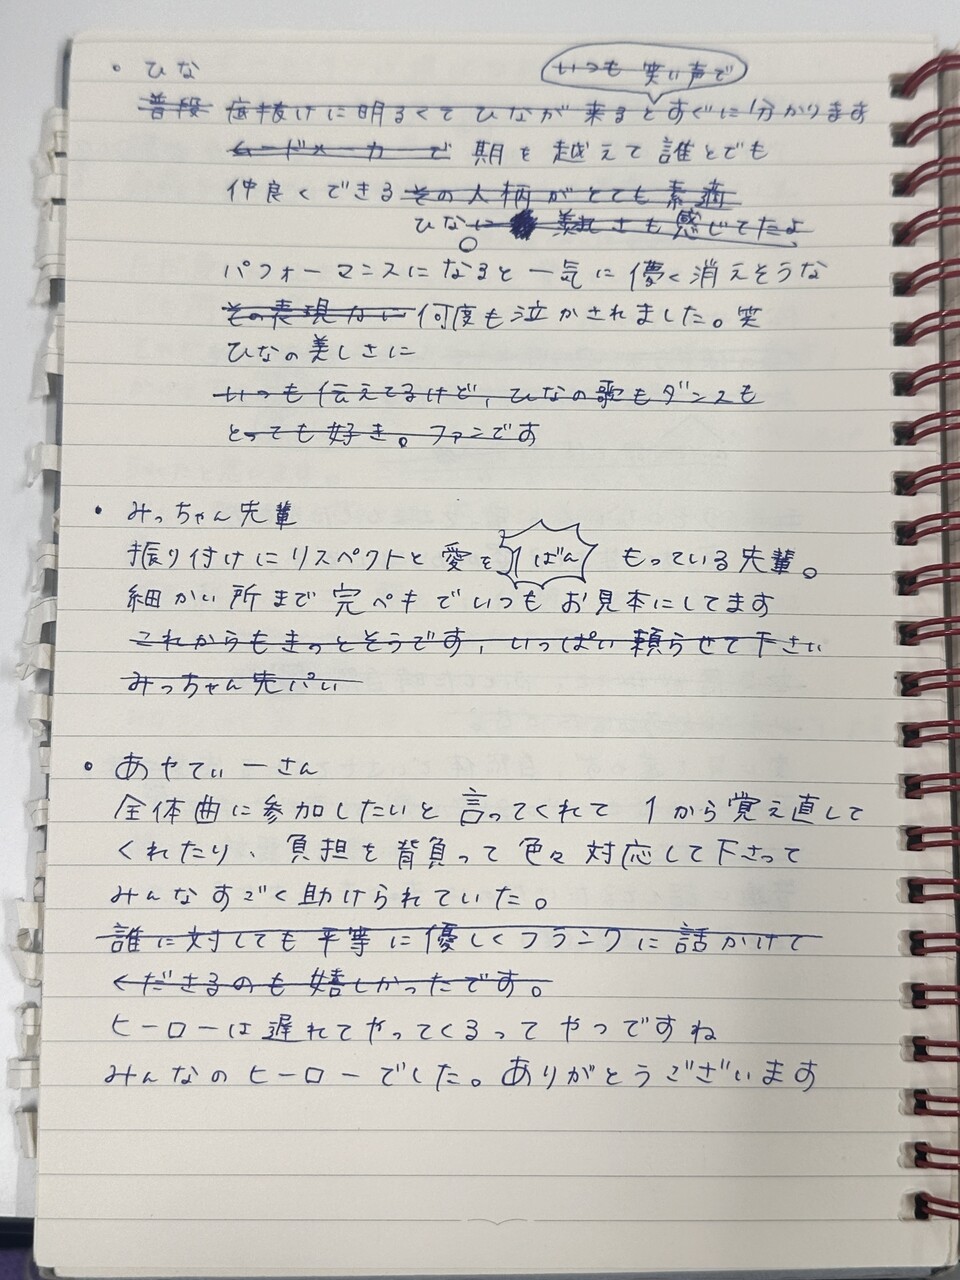 ・ひな
いつも 笑い声で
普段 底抜けに明るくて ひなが 来るとすぐに分かります
ムードメーカーで 期を越えて誰とでも
仲良くできるその人柄がとても素適
ひなに 羨しさも感じてたよ
パフォーマンスになると一気に儚く消えそうな
その表現力に何度も泣かされました。笑
ひなの美しさに
いつも伝えてるけど、ひなの歌もダンスも
とっても好き。ファンです
・みっちゃん先輩
振り付けにリスペクトと愛を1ばん もっている先輩。
細かい所まで完ペキでいつもお見本にしてます
これからもきっとそうです、いっぱい頼らせて下さい
みっちゃん先パい
・あやてぃーさん
全体曲に参加したいと言ってくれて 1から覚え直して
くれたり、負担を背負って色々対応して下さって
みんなすごく助けられていた。
誰に対しても平等に優しくフランクに話かけて
くださるのも嬉しかったです。
ヒーローは遅れてやってくるってやつですね
みんなのヒーローでした。ありがとうございます